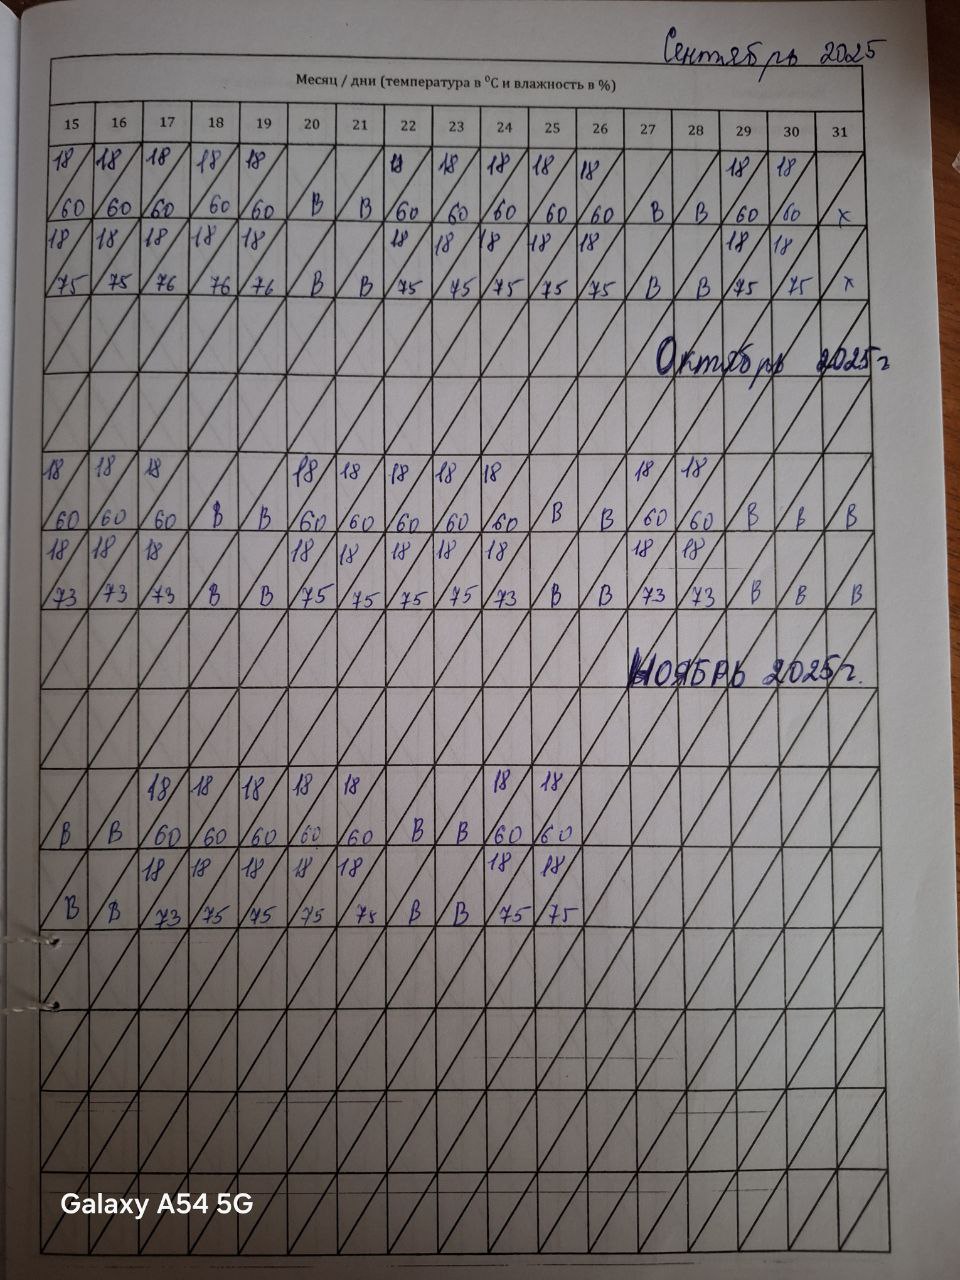 Сентябрь 2025
Месяц / дни (температура в ⁰С и влажность в %)
15 16 17 18 19 20 21 22 23 24 25 26 27 28 29 30 31
18 18 18 18 18 18 18 18 18 18 18 18
60 60 60 60 60 В В 60 60 60 60 60 В В 60 60 х
18 18 18 18 18 18 18 18 18 18 18 18
75 75 76 76 76 В В 75 75 75 75 75 В В 75 75 х
Октябрь 2025г
18 18 18 18 18 18 18 18 18 18
60 60 60 В В 60 60 60 60 60 В В 60 60 В В В
18 18 18 18 18 18 18 18 18 18
73 73 73 В В 75 75 75 75 73 В В 73 73 В В В
НОЯБРЬ 2025г.
18 18 18 18 18 18 18
В В 60 60 60 60 60 В В 60 60
18 18 18 18 18 18 18
В В 73 75 75 75 75 В В 75 75
Galaxy A54 5G